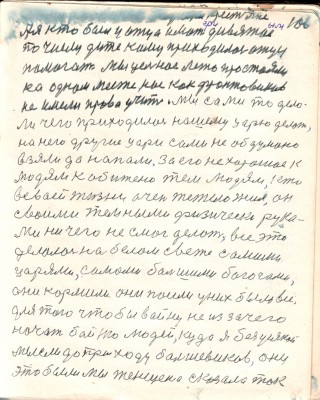 106
для кто был у отца
по чему дите кому приходился отцу
помогать мы целное лето простояли
на одном месте нас как фронтовиков
не имели права учить. Мы сами то дело-
ли чего приходился нашему царю делат,
на него другие цари сами не обдумано
взяли да напали, За его нехорошае к
людям и обижено тем людям, кто
всвоей жизни очен тежело жил, он
своими темными физическо рука-
ми ничего не смог делот, все это
делолос на белом свете самими
царями, самыми балшими богочами,
они кормили они поили у них было все
для того чтобы вайну не из за чего
начат бойтю людей, куда я без уся кой
мысли до приходу балшевиков, они
это были мы женщена сказала так